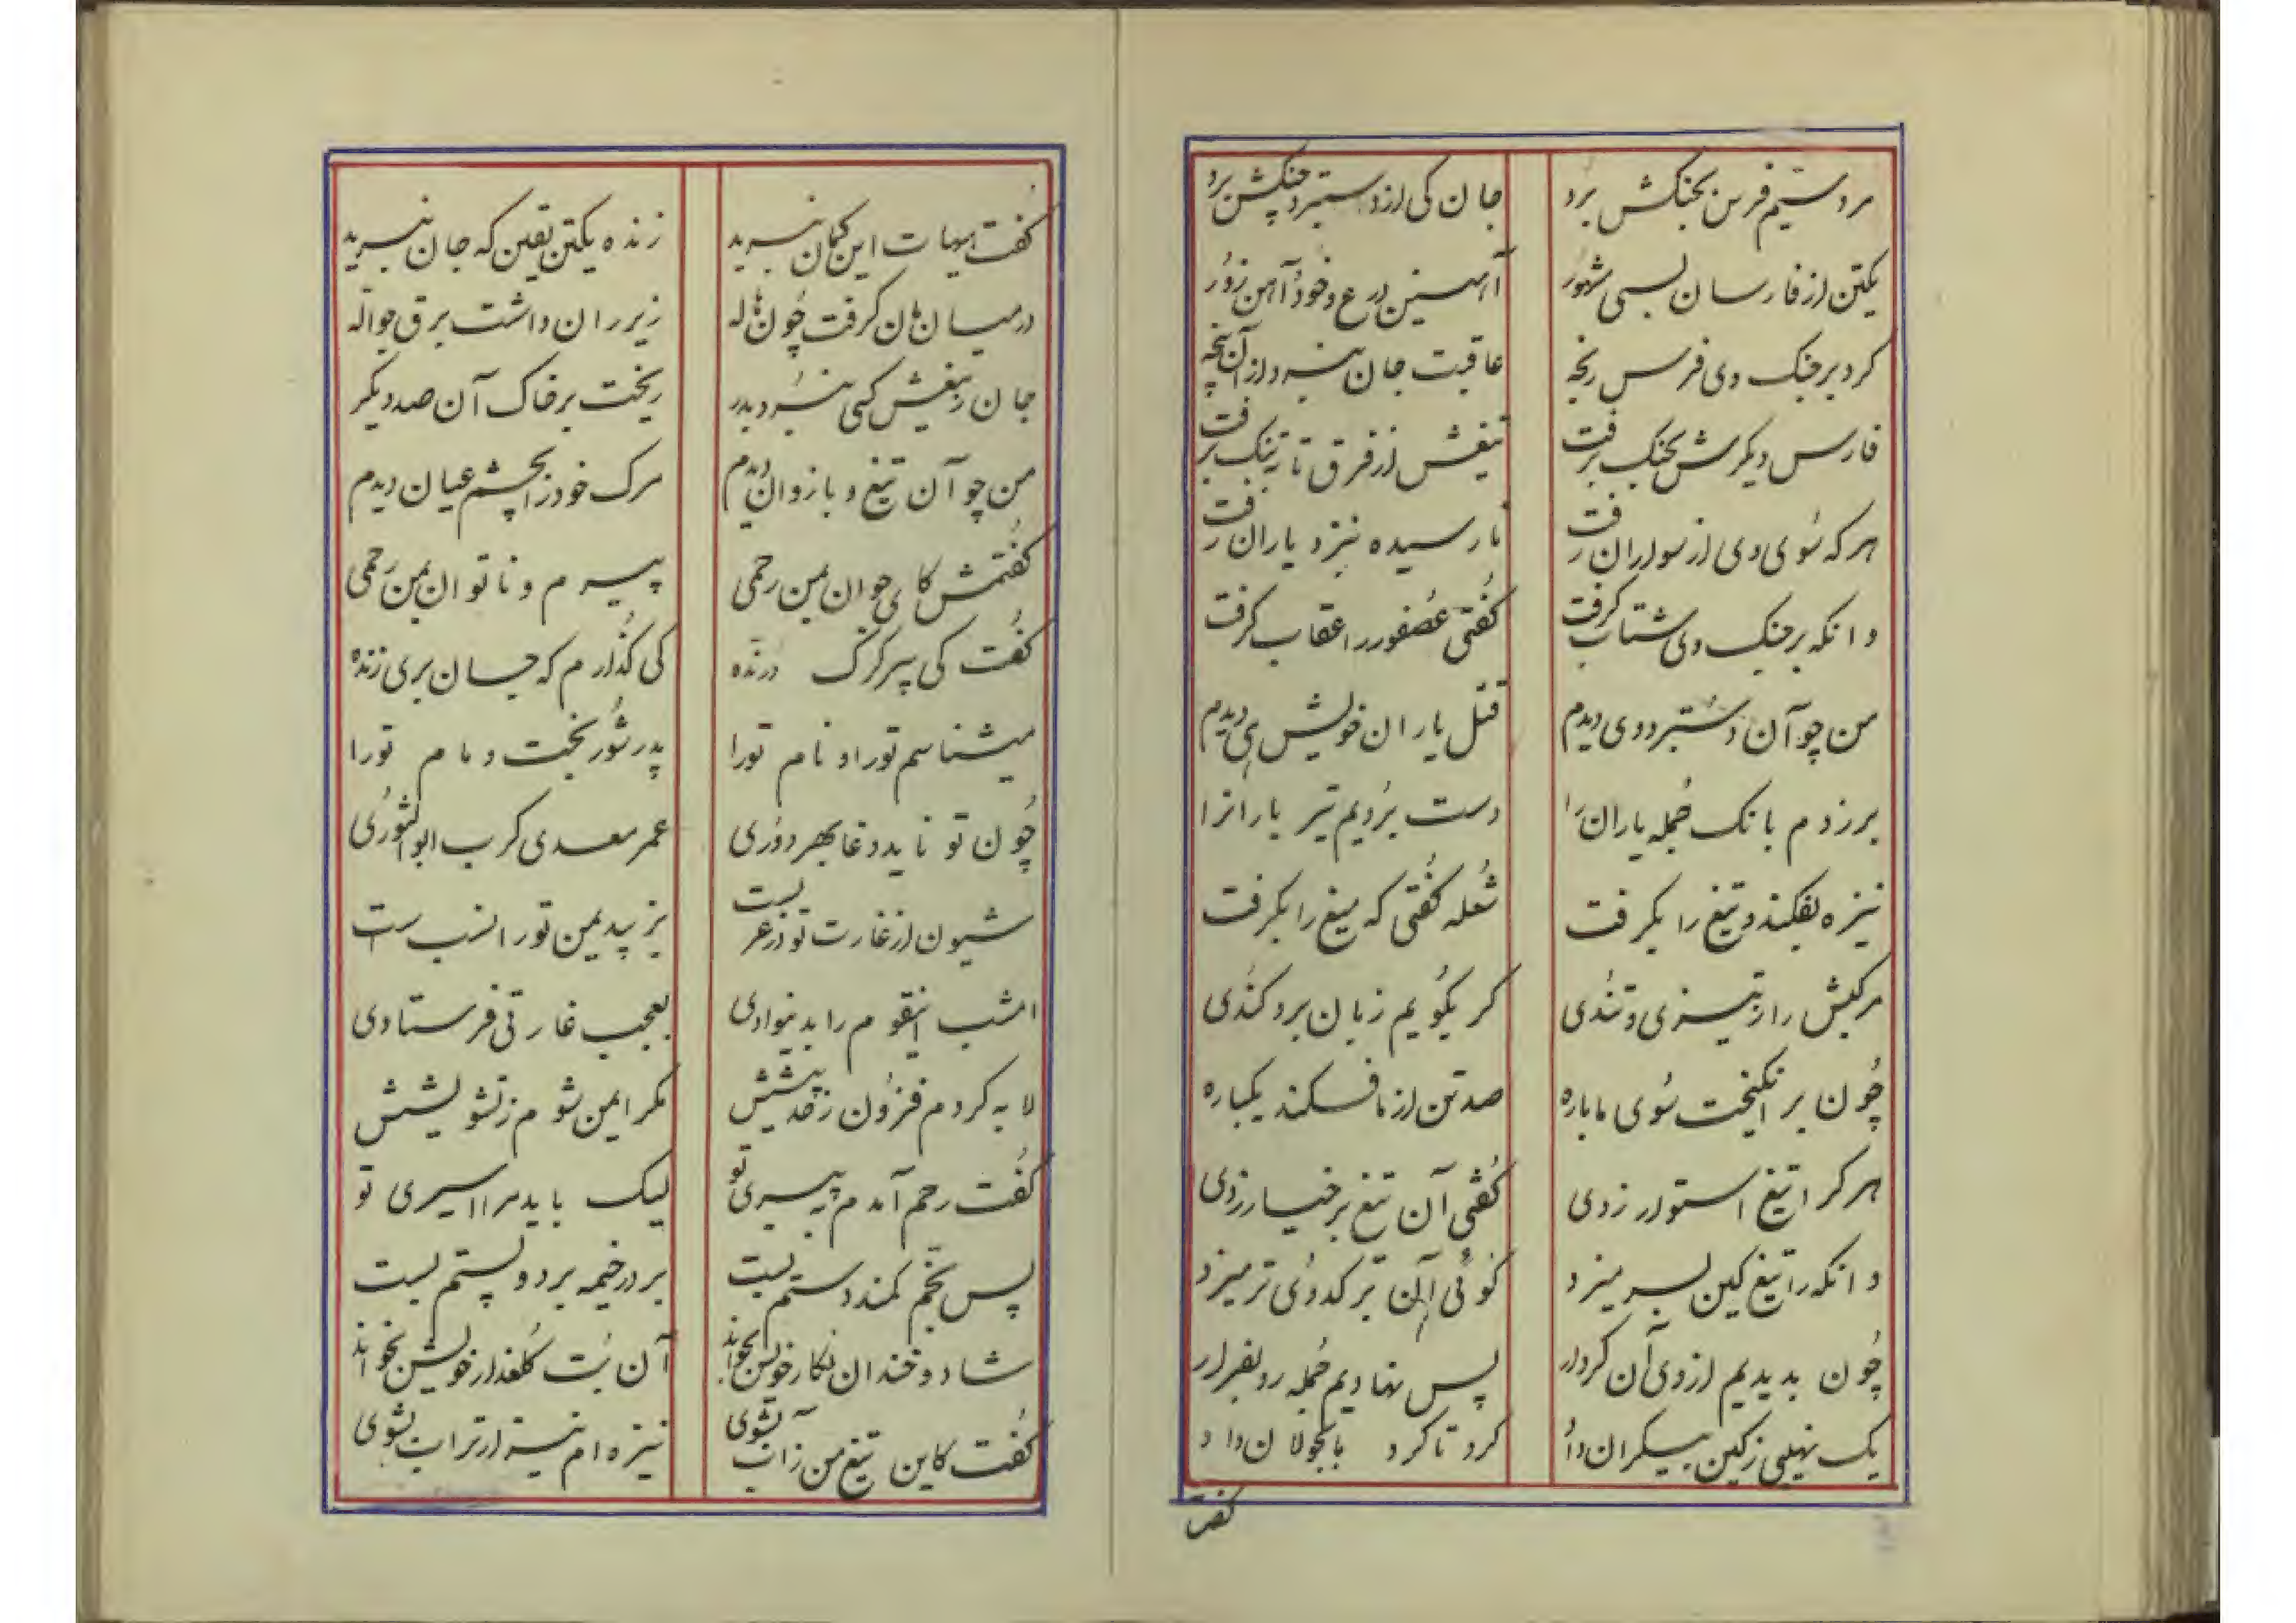 مرد سیم فرس بجنکش برد جان کی از دستبرد جنکش برد
یکتن از فارسان بسی مشهور آهنین درع و خود آهن زور
کرد بر جنک وی فرس رنجه عاقبت جان نبرد از آن پنجه
فارس دیکرش بجنک برفت تیغش از فرق تا بتنک برفت
هر که سوی وی از سواران رفت نارسیده بنزد یاران رفت
وانکه بر جنک وی شتاب کرفت کفتی عصفور را عقاب کرفت
من چو آن دستبرد وی دیدم قتل یاران خویش دیدم
برزدم بانک جمله یاران را دست بردیم تیر بارانرا
نیزه بفکند و تیغ را بکرفت شعله کفتی که میغ را بکرفت
مرکبش را ز تیزی و تندی کر بکویم زبان برد کندی
چون برانکیخت سوی ما باره صد تن از ما فکند یکباره
هر کرا تیغ استوار زدی کفتی آن تیغ بر خیار زدی
وانکه را تیغ کین بسر میزد کوئی آن بر کدوی تر میزد
چون بدیدیم از وی آن کردار پس نهادیم جمله رو بفرار
یک نهیبی ز کین بیکران داد کرد تا کرد با بجولان داد
کفت
کفت هیهات این کمان نبرید زنده یکتن یقین که جان نبرید
در میان‌مان کرفت چون هاله زیر ران داشت برق جواله
جان ز تیغش کسی نبرد بدر ریخت بر خاک آن صد دیکر
من چو آن تیغ و بازوان دیدم مرک خود را بچشم عیان دیدم
کفتمش کای جوان بمن رحمی پیرم و ناتوان بمن رحمی
کفت کی پیر کرک درنده کی کذارم که جان بری زنده
میشناسم تو را و نام تو را پدر شور بخت و مام تو را
چون تو ناید دغا بهر دوری عمر معدی کرب ابو الثوری
شیون از غارت تو در عربست یزبید یمن تو را نسب است
امشب اینقوم را بد نیوادی بعجب غارتی فرستادی
لابه کردم فزون ز حد پیشش مکر ایمن شوم ز تشویشش
کفت رحم آمدم به پیری تو لیک باید مرا اسیری تو
پس بخم کمند دستم بست بر در خیمه برد و پستم بست
شاد و خندان نکار خویش بخواند آن بت کلعذار خویش بخواند
کفت کاین تیغ من ز آب بشوی نیزه‌ام نیز از تراب بشوی